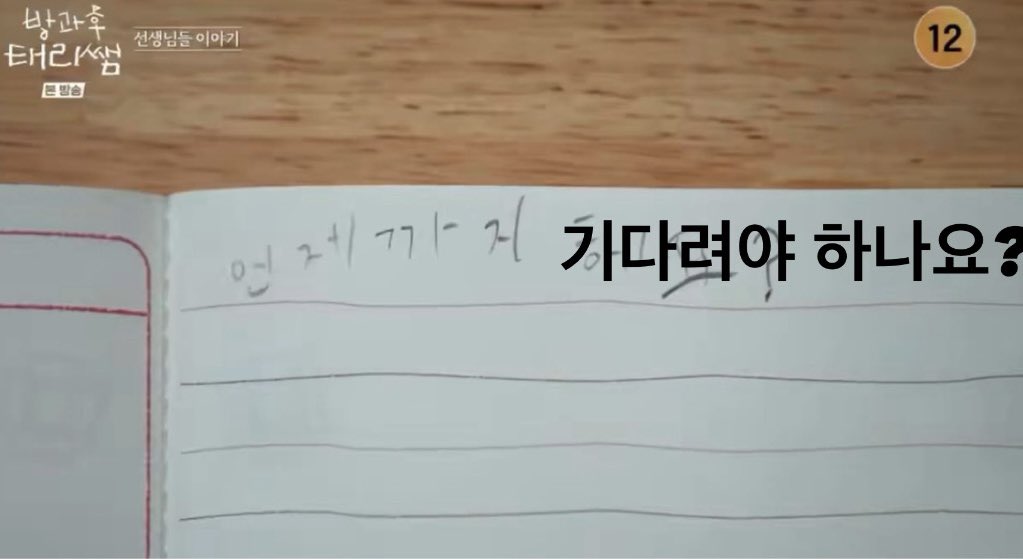 방과후
태리쌤
본 방송
선생님들 이야기
12
언제까지 기다려야 하나요?